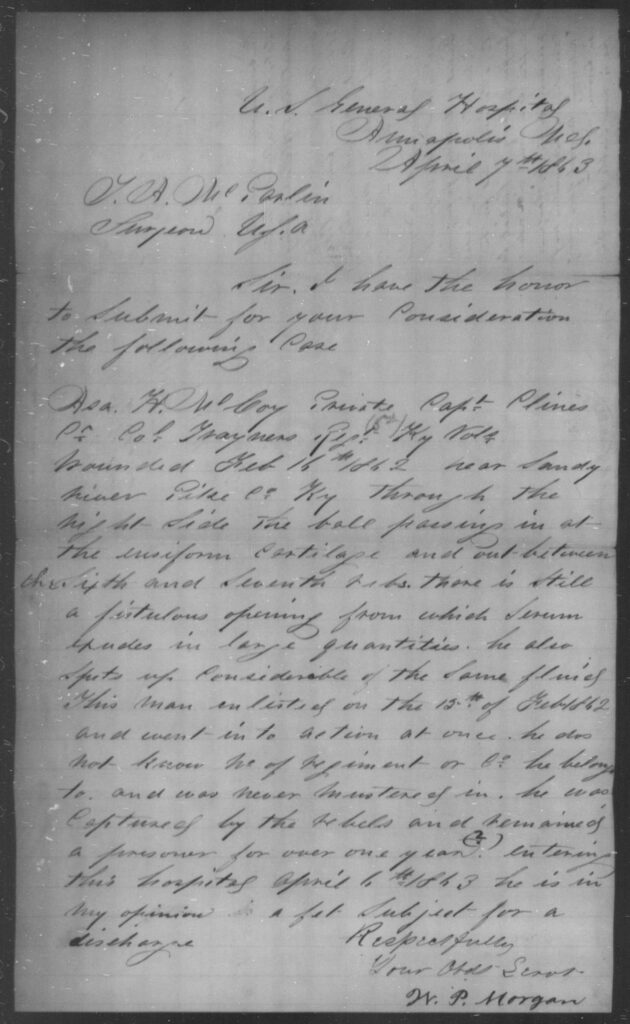 U. S. General Hospital
Annapolis Md.
April 7th 1863
T. A. McParlin
Surgeon U.S.A
Sir. I have the honor
to Submit for your Consideration
the following Case
Asa. H. McCoy Private Capt. Clines
Co. Col. Trayners Regt. Ky Vols
Wounded Feb 16th 1862 near Sandy
river Pike Co. Ky through the
right Side the ball passing in at
the ensiform Cartilage and out between
the Sixth and Seventh ribs. there is still
a fistulous opening from which Serum
exudes in large quantities. he also
spits up Considerable of the Same fluid
This man enlisted on the 15th of Feb 1862
and went into action at once. he dos
not know No of regiment or Co. he belongs
to. and was never mustered in. he was
Captured by the rebels and remained
a prisoner for over one year (?). entering
this hospital April 6th 1863 he is in
my opinion is a fit Subject for a
discharge Respectfully
Your Obdt Servt
W. P. Morgan